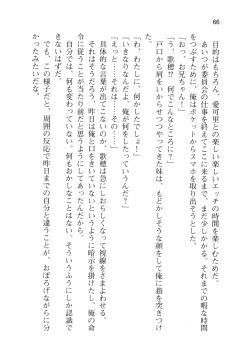 66
目的はもちろん、愛可里との楽しい楽しいエッチの時間を楽しむためだ。
あいつが委員会の仕事を終えてここに来るまで、まだ少しかかる。それまでの暇な時間
をつぶすために、俺はポケットからスマホを取り出そうとした。
「おっ、お兄ちゃん！」
「うっ、歌穂？何でこんなところに？」
戸口から肩をいからせつつやってきた妹は、もどかしそうな顔をして俺に指を突きつけ
た。
「わ、わたしに、何かしたでしょ！」
「いきなりなんだよ、俺が何をしたっていうんだ？」
「えっ…‥それは……その……」
具体的な言葉が出てこないのか、歌穂は急にしおらしくなって視線をさまよわせる。
それはそうだろう、昨日は俺と口をきいていないというように暗示を掛けたし、俺の命
令に従うことが当たり前だと思うようにしてあったんだから。
自分では、何も変わっていない。何もおかしなことはない。そういうふうにしか認識で
きないはずだ。
でも、この様子だと、周囲の反応で昨日までの自分と違うことが、おぼろげながらに分
かったみたいだな。